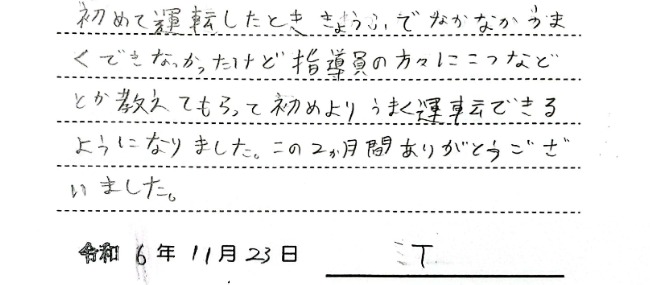 初めて運転したとききょうふでなかなかうま
くできなかったけど指導員の方々にこつなど
とか教えてもらって初めよりうまく運転できる
ようになりました。この2か月間ありがとうござ
いました。
令和6年11月23日